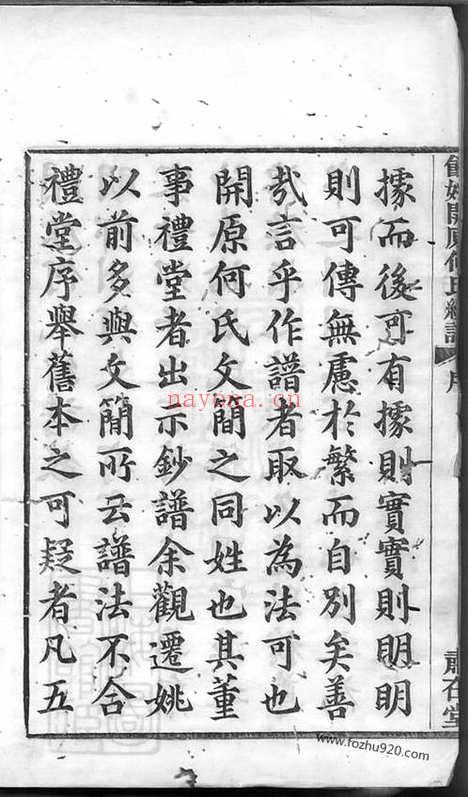 姚開原何氏
據而後可有據則實實則明明
則可傳無慮於繁而自別矣善
哉言乎作譜者取以為法可也
開原何氏文簡之同姓也其董
事禮堂者出示鈔譜余觀遷姚
以前多與文簡所云譜法不合
禮堂序舉舊本之可疑者凡五
nayona.cn
www.fozhu920.com